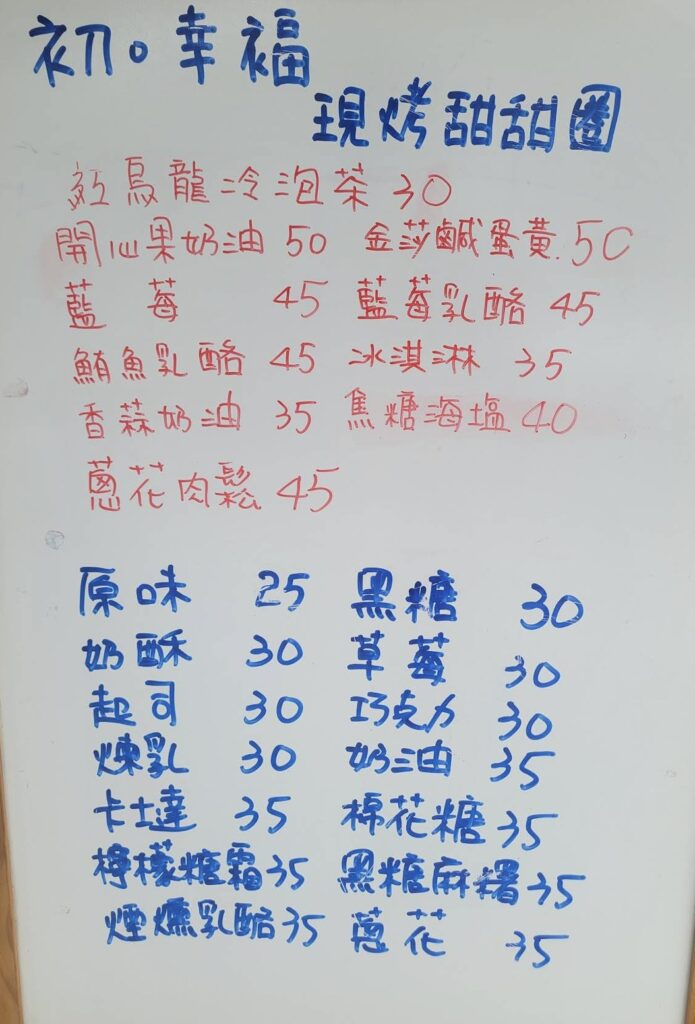 初。幸福
現烤甜甜圈
紅烏龍冷泡茶 30
開心果奶油 50 金莎鹹蛋黃.50
藍莓 45 藍莓乳酪 45
鮪魚乳酪 45 冰淇淋 35
香蒜奶油 35 焦糖海塩 40
蔥花肉鬆 45
原味 25 黑糖 30
奶酥 30 草莓 30
起司 30 巧克力 30
煉乳 30 奶油 35
卡士達 35 棉花糖 35
檸檬糖霜 35 黑糖麻糬 35
煙燻乳酪 35 蔥花 35